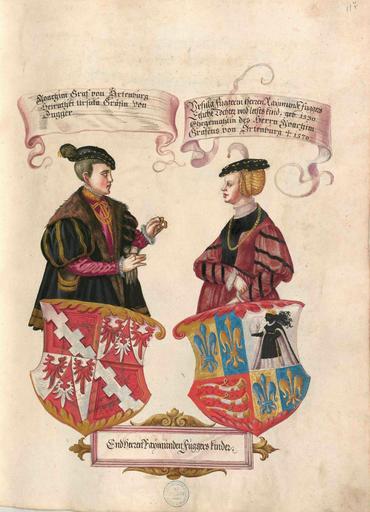 Joachim Graf von Ortenburg
Heirathet Ursula Gräfin von
Fugger.
Ursula Fuggerin Herren Raymundt Fuggers
Sechste Tochter und letsts kind, geb. 1530
Ehegemahlin des Herrn Joachim
Grafens von Ortenburg † 1570.
End Herren Raymunden Fuggers kinder.